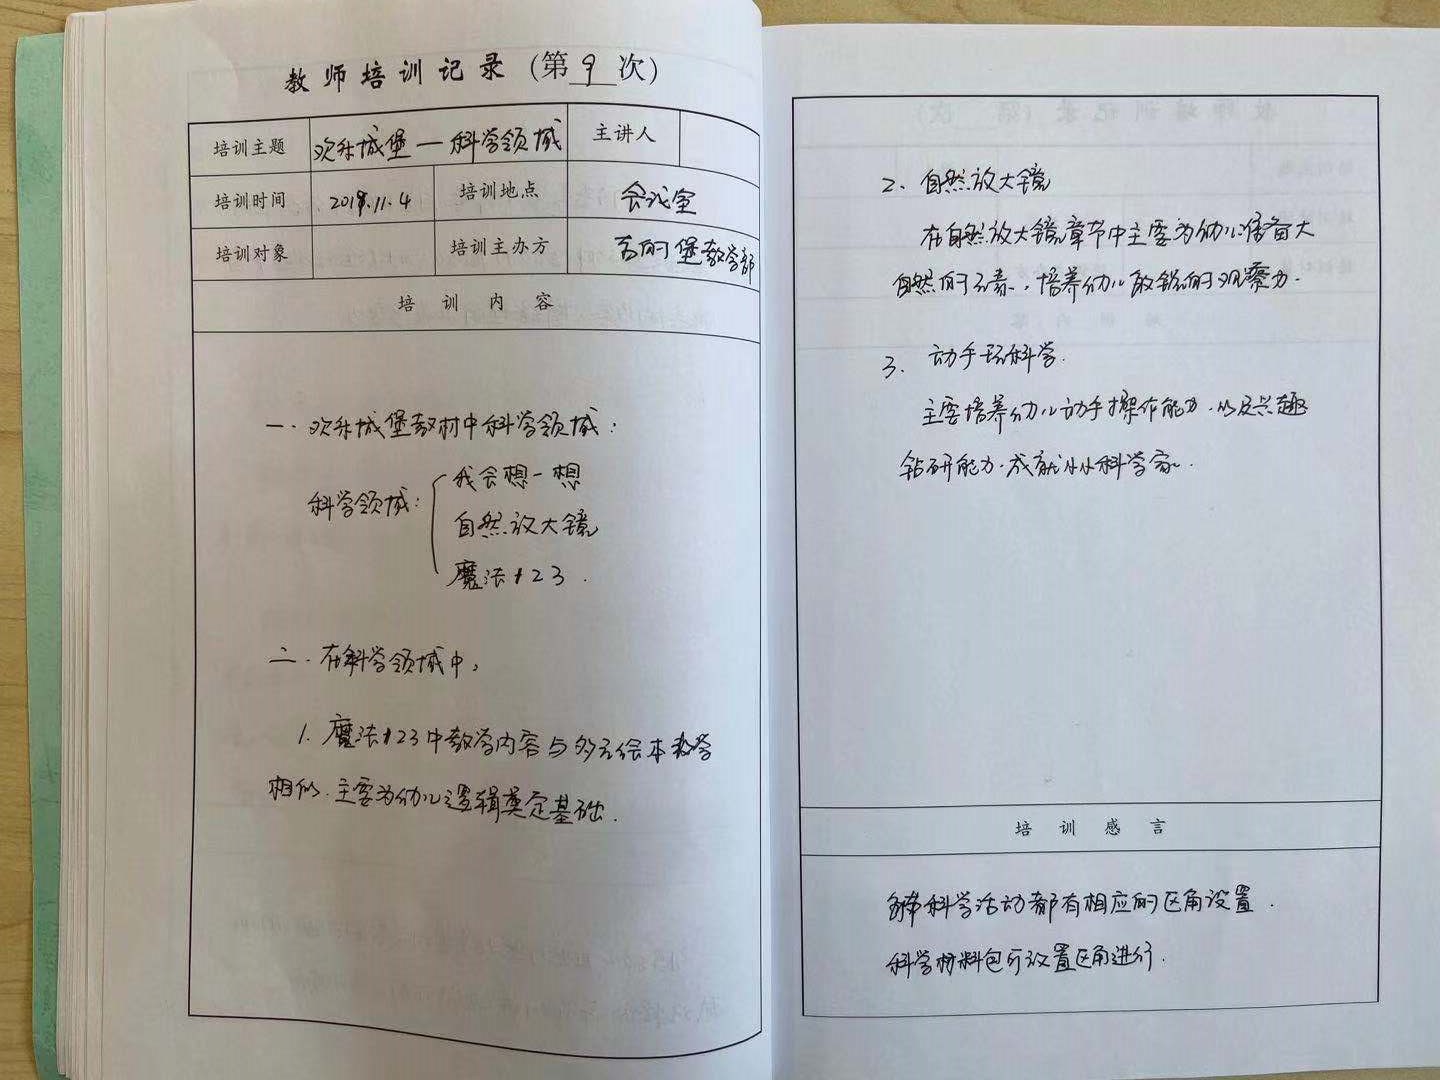 教师培训记录（第9次）
培训主题 欢乐城堡—科学领域 主讲人
培训时间 2019.11.4 培训地点 会议室
培训对象 培训主办方 吉的堡教学部
培训内容
一.欢乐城堡教材中科学领域：
科学领域：
我会想一想
自然放大镜
魔法123.
二.在科学领域中，
1.魔法123中教学内容与多元绘本教学
相似.主要为幼儿逻辑奠定基础.
2.自然放大镜
在自然放大镜章节中主要为幼儿准备大
自然的元素，培养幼儿敏锐的观察力.
3.动手玩科学.
主要培养幼儿动手操作能力.以及兴趣
钻研能力.成就小小科学家.
培训感言
科学活动都有相应的区角设置.
科学材料包可放置区角进行.